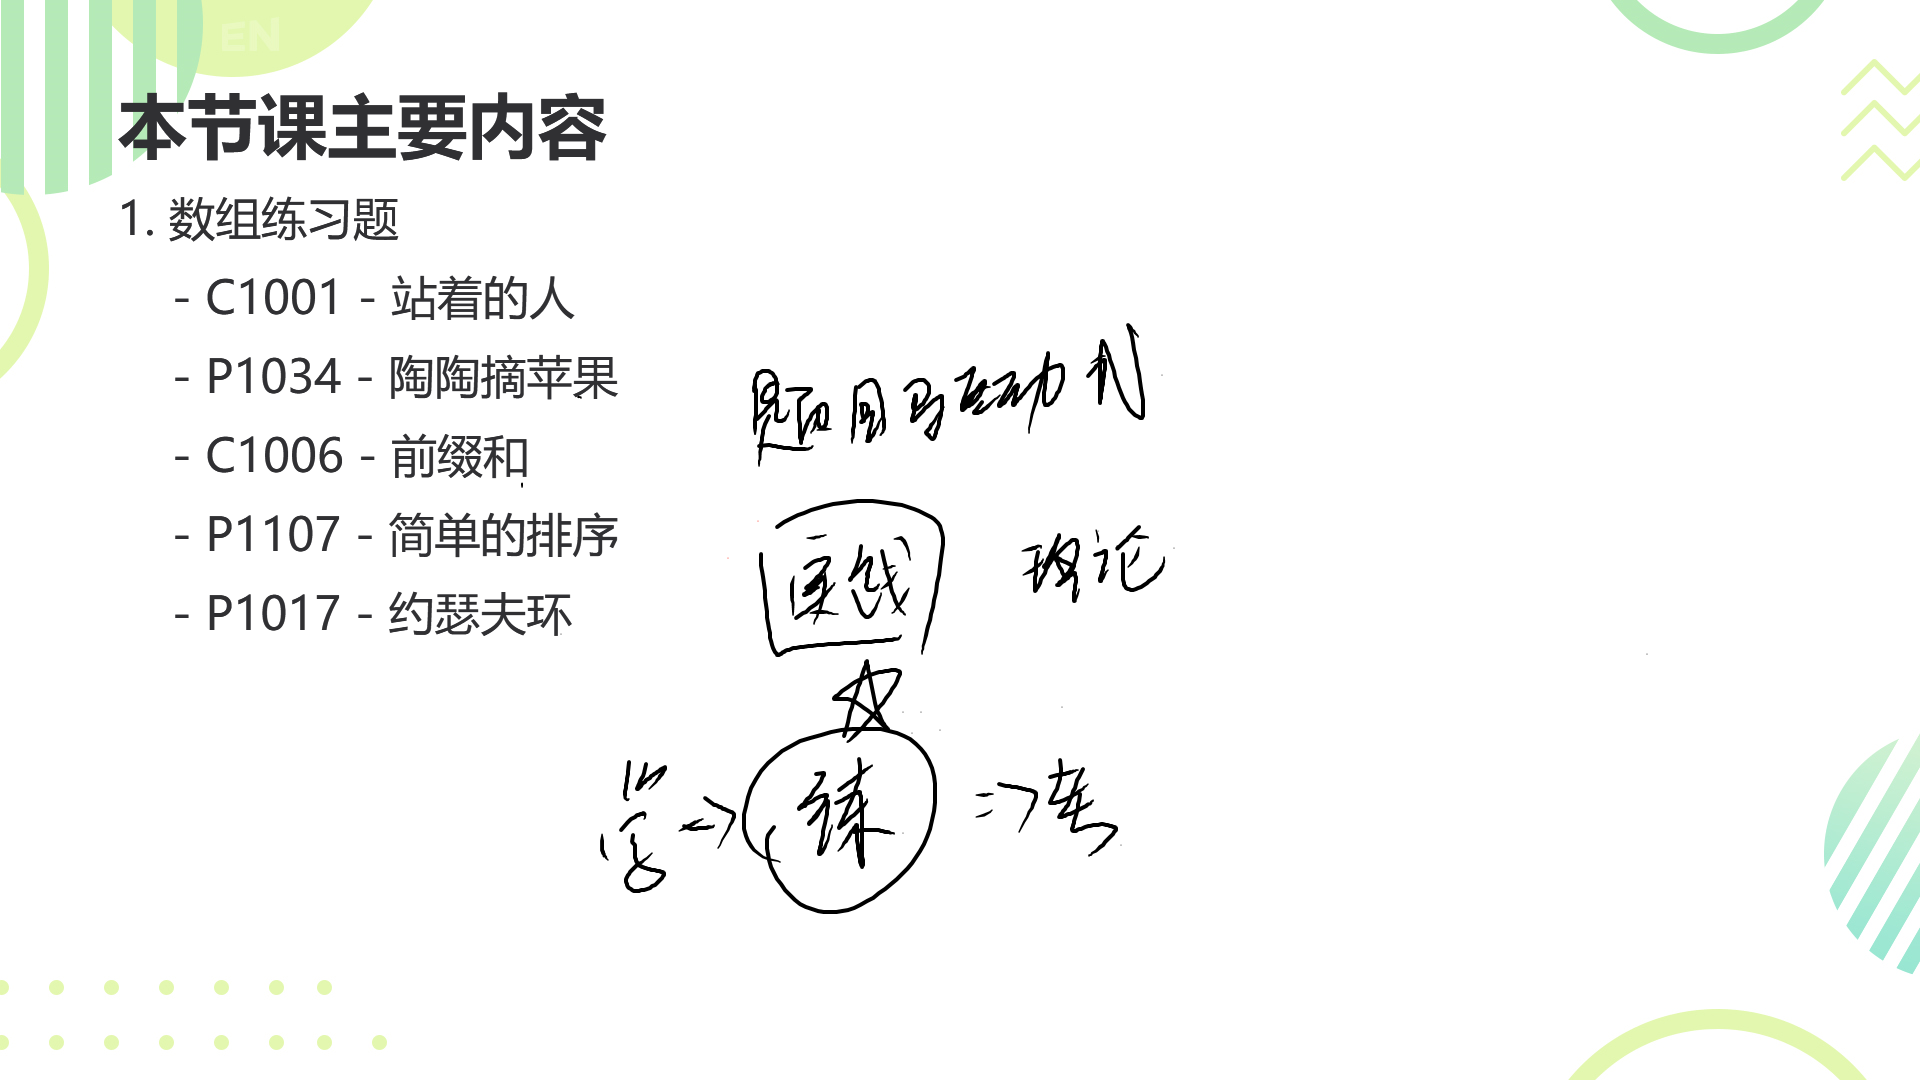 EN
本节课主要内容
1. 数组练习题
- C1001 - 站着的人
- P1034 - 陶陶摘苹果
- C1006 - 前缀和
- P1107 - 简单的排序
- P1017 - 约瑟夫环
题目驱动制
实践 理论
学 => 练 => 考